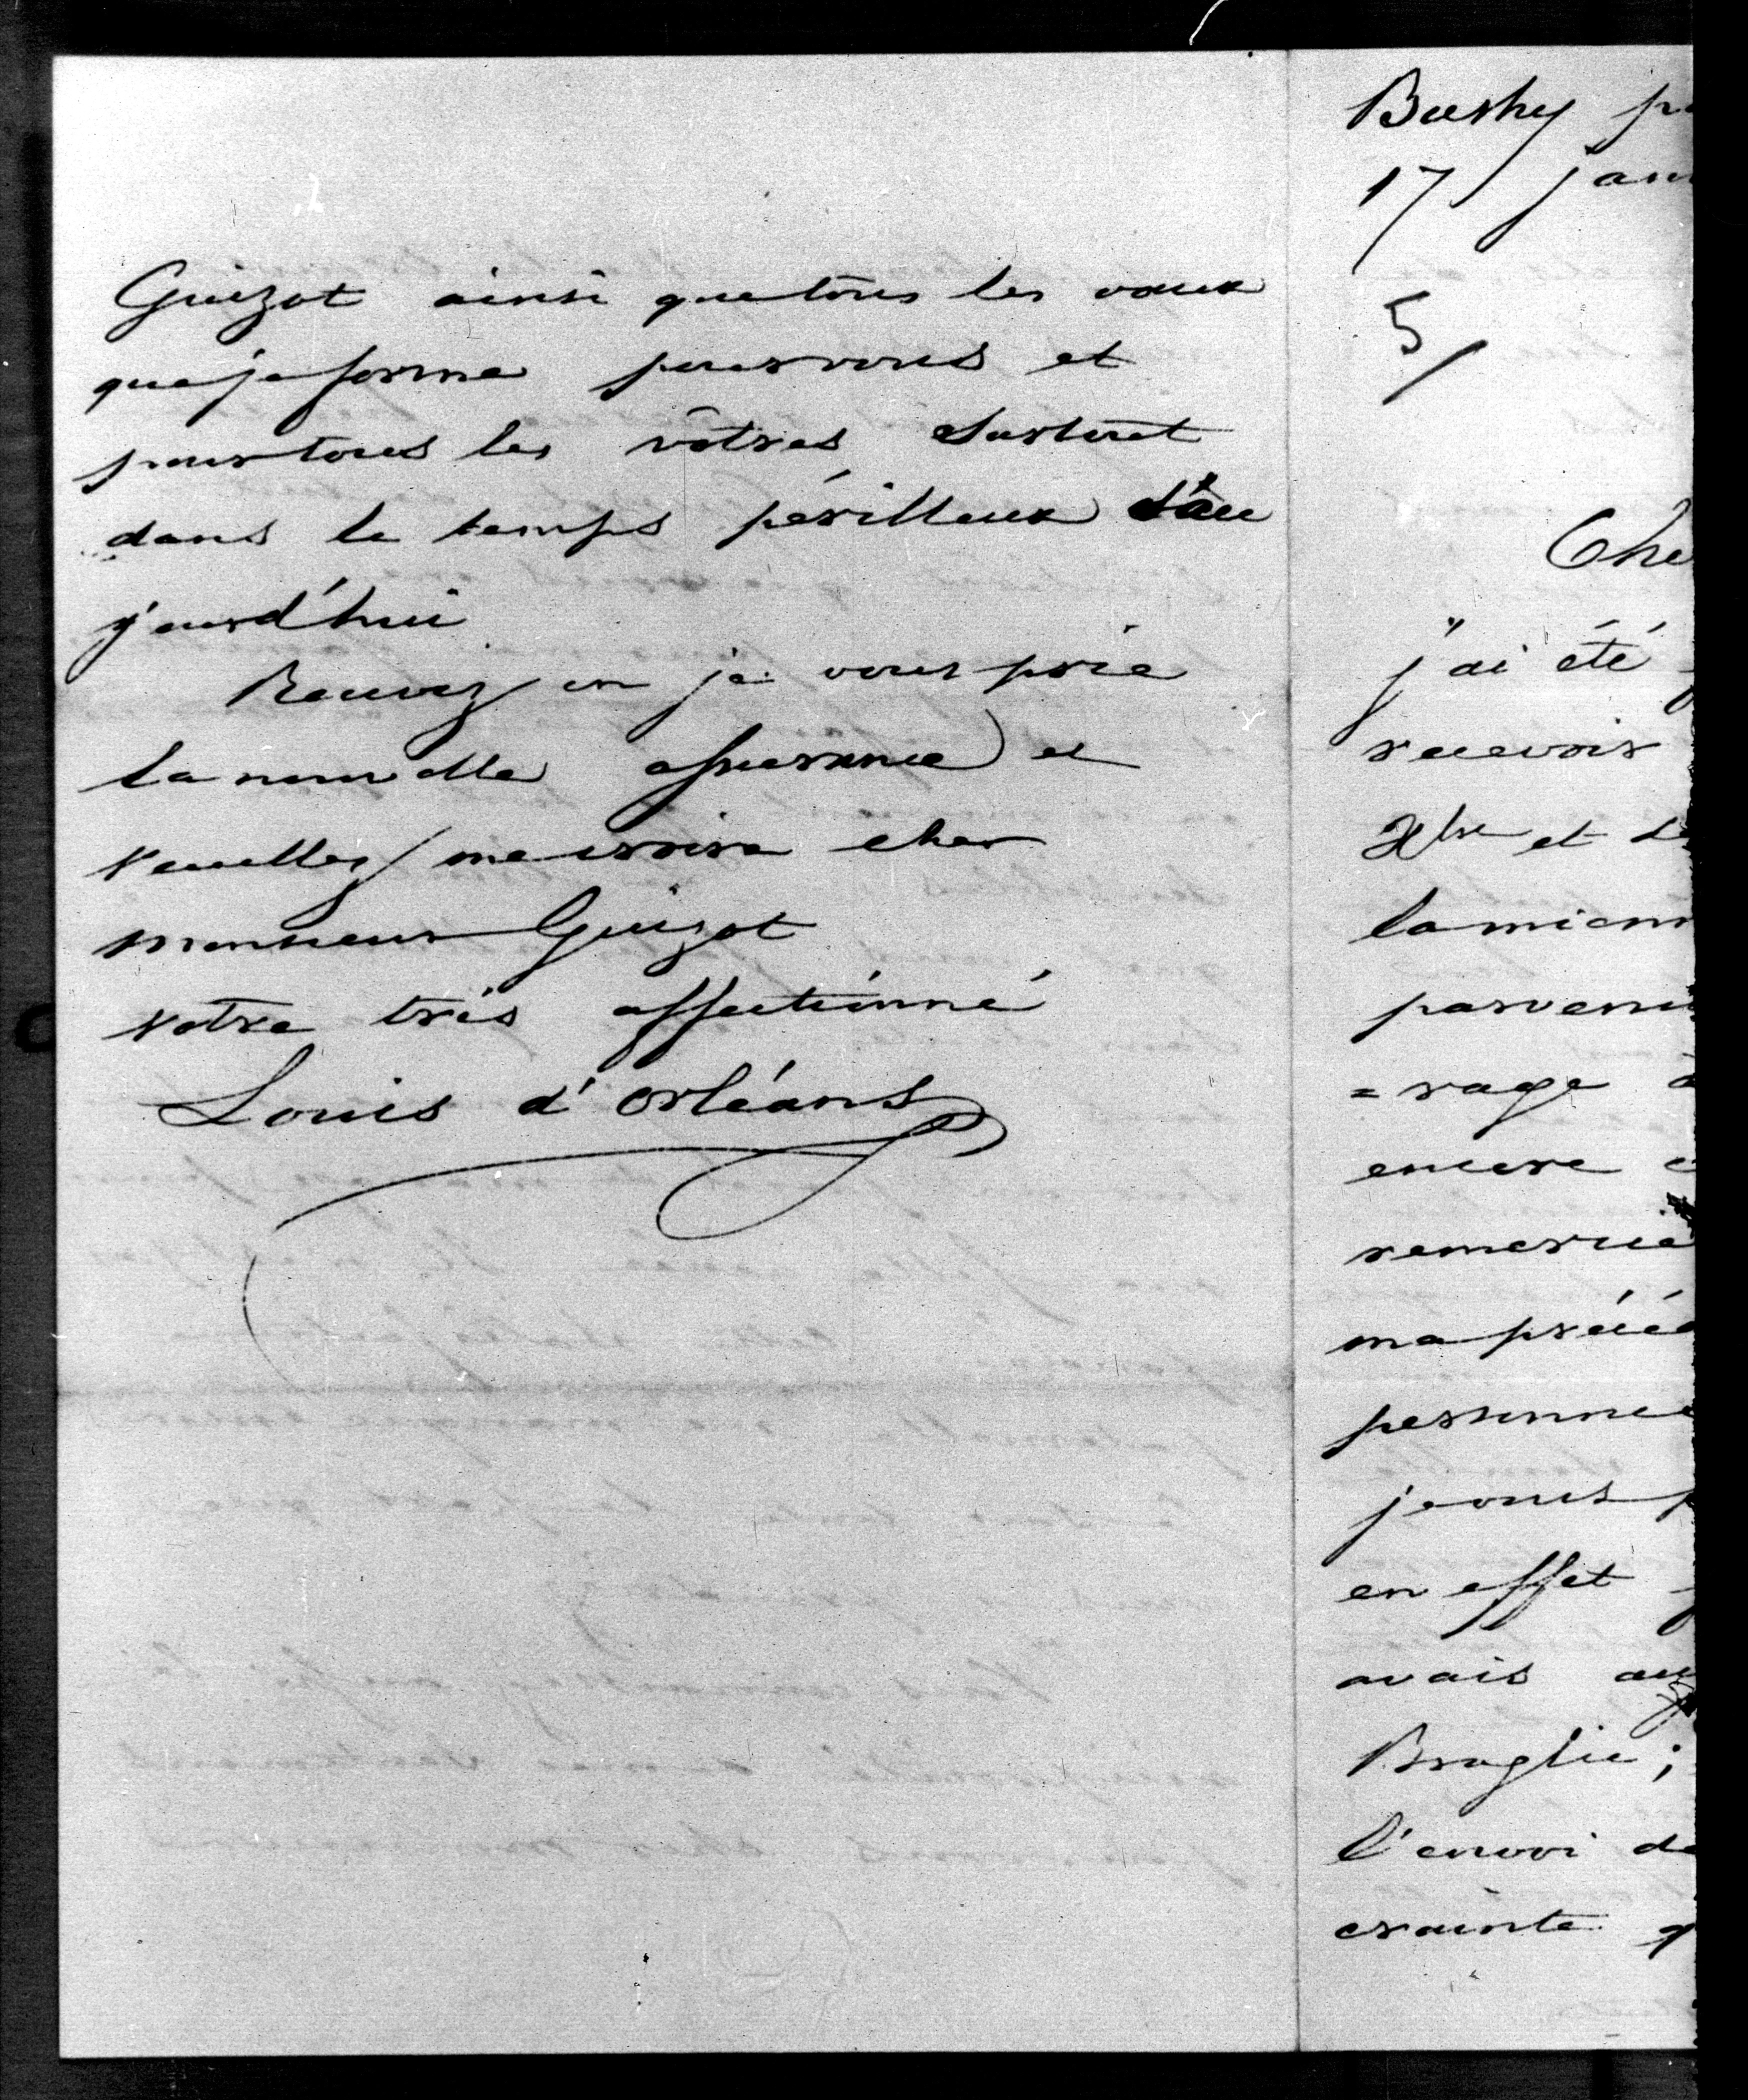 Guizot ainsi que tous les vœux
que je forme pour vous et
pour tous les vôtres surtout
dans le temps périlleux d'au
jourd'hui
Recevez en je vous prie
la nouvelle assurance et
veuillez me croire cher
monsieur Guizot
votre très affectionné
Louis d'Orléans
Bushy
17 janv
5
Che
j'ai été
recevoir
Xbre et de
la mienn
parvenu
=rage
encore
remercie
ma précé
personne
je vous
en effet
avais
Broglie ;
l'envoi de
crainte